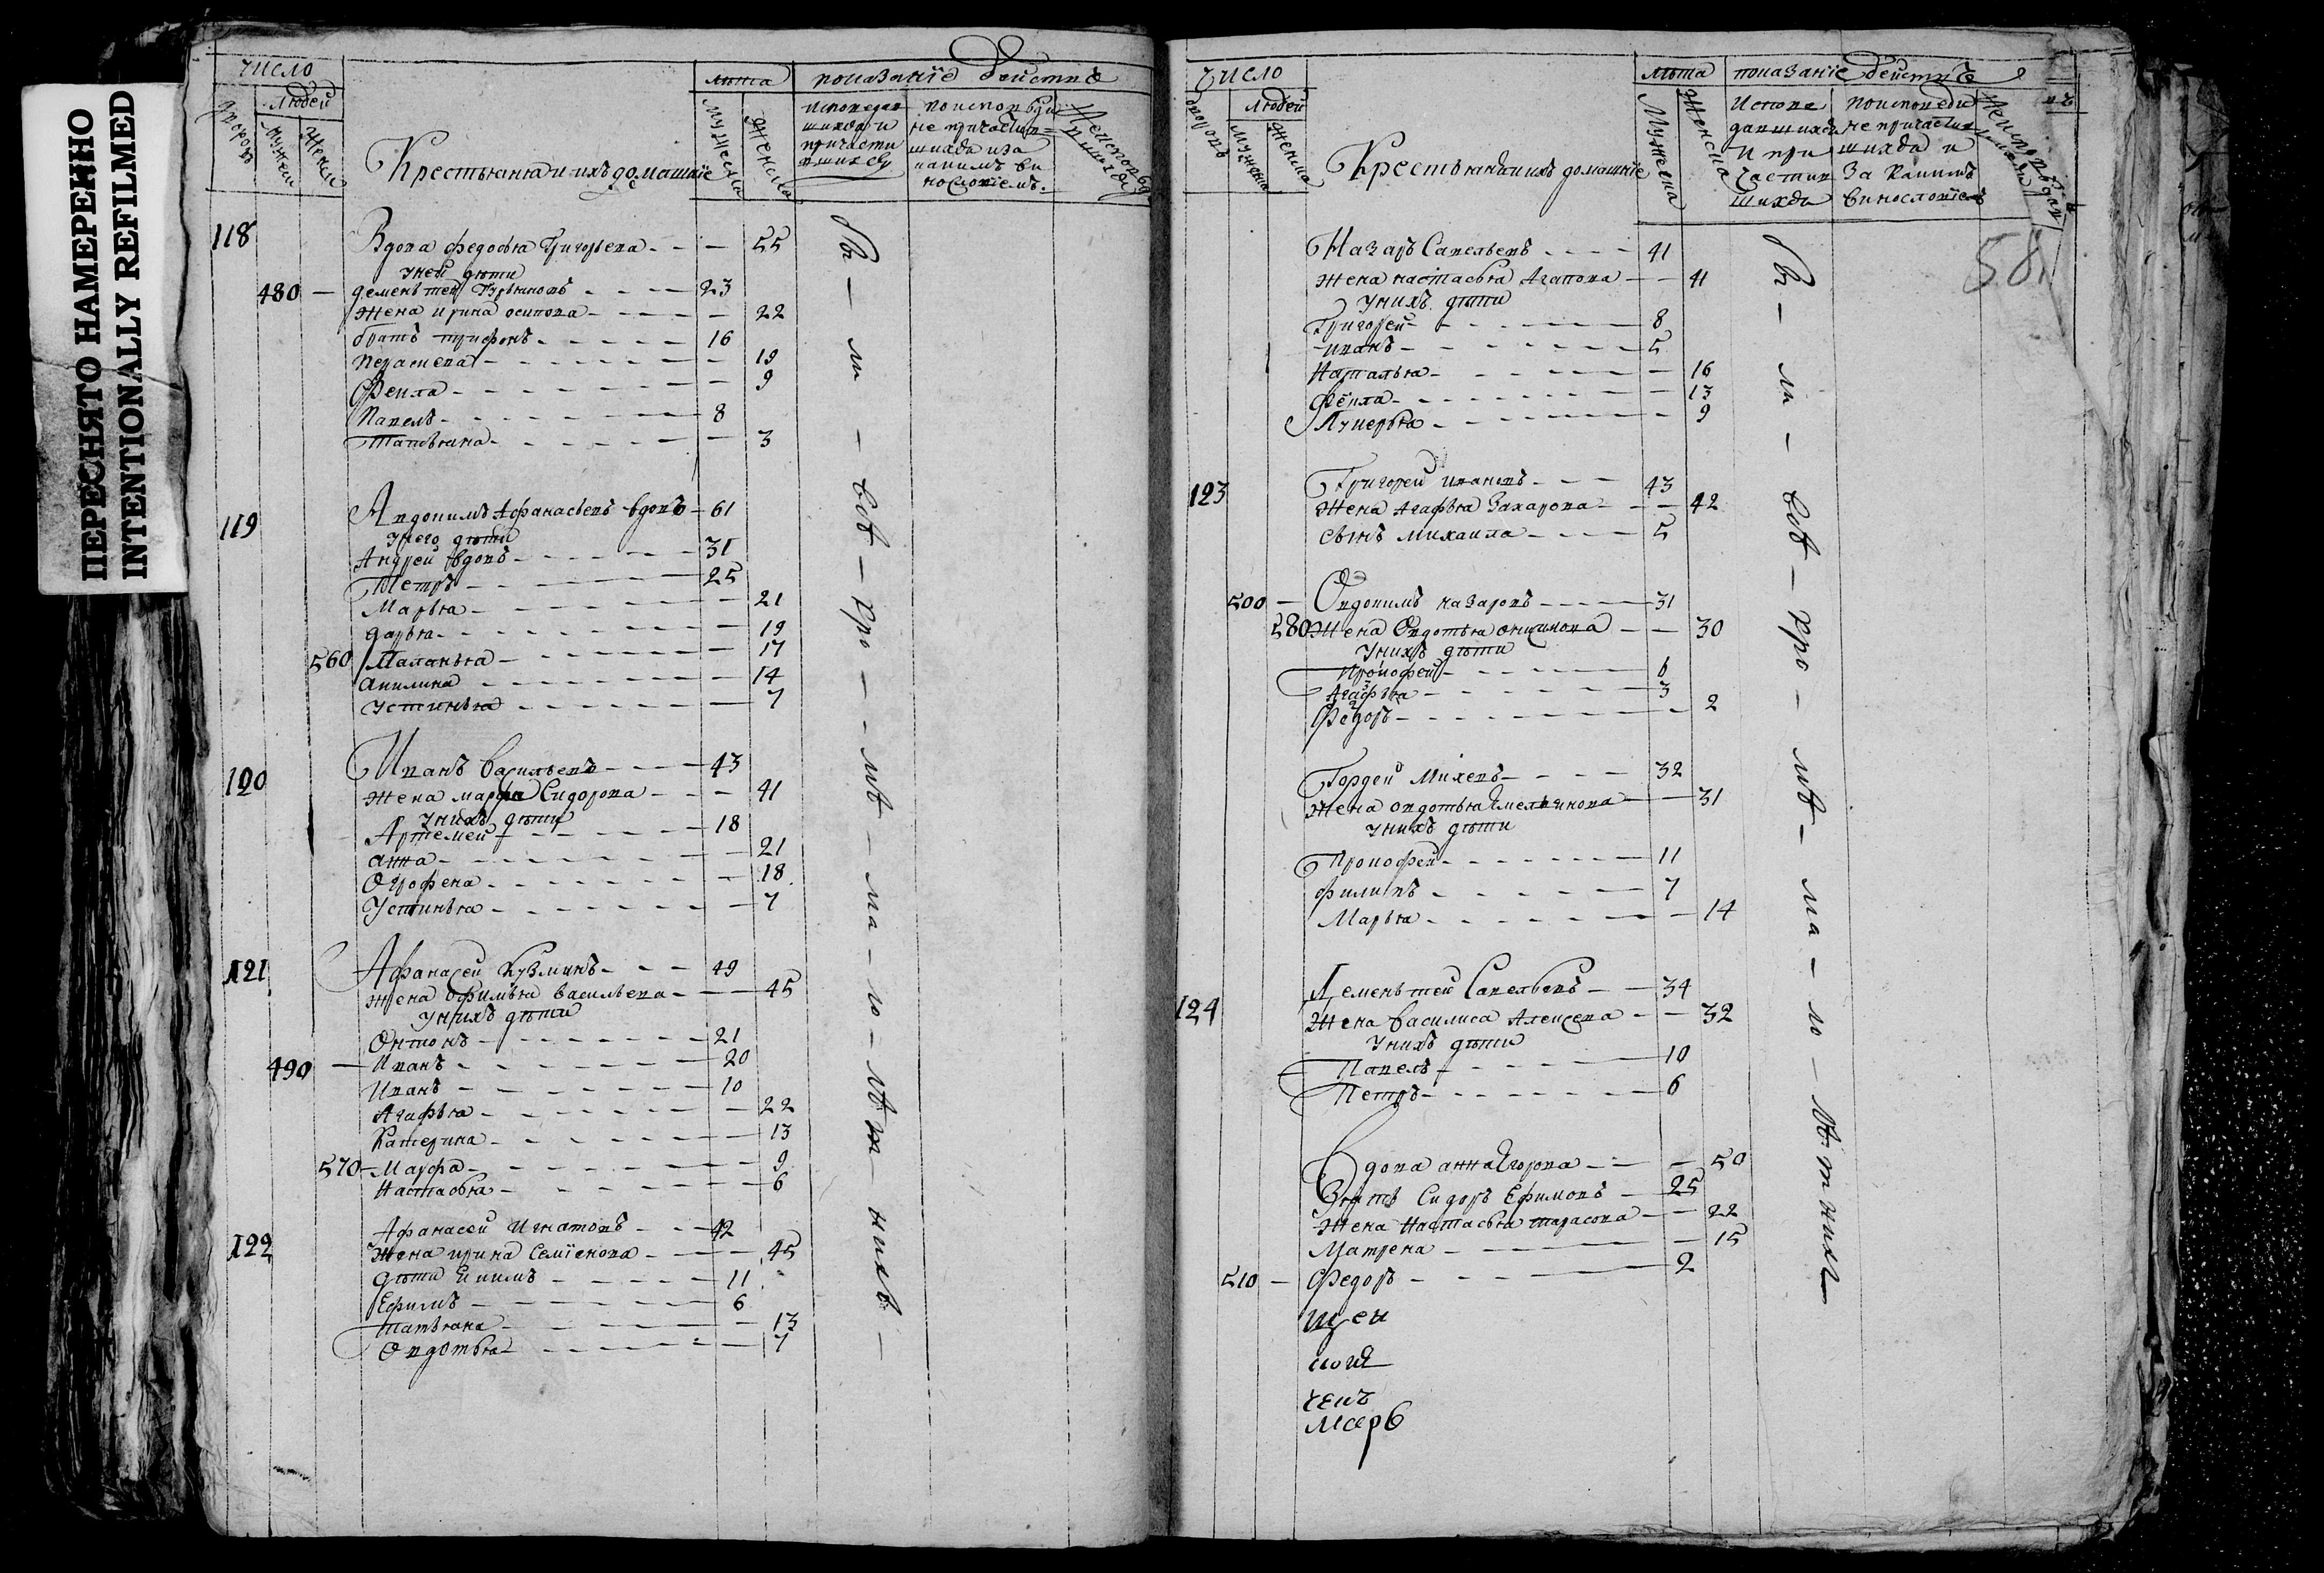 ПЕРЕСНЯТО НАМЕРЕННО
INTENTIONALLY REFILMED
число
людей
дворовъ
мужеи
женки
Крестьяня и ихъ домашние
лѣта
мужеска
женска
показаніе действъ
исповедав
шихся и
причасти
вшихся
поисповѣди
не причастив=
шихся и за
какимъ ви
нословіемъ
118 Вдова федосья Григорьева - - - 55
у неи дѣти
480 - дементеи Гурьяновъ - - - 23
жена ирина осипова - - - 22
братъ трифонъ - - - 16
Парасчева - - - 19
Фекла - - - 9
Павелъ - - - 8
Татьяна - - - 3
119 Авдокимъ Афанасьевъ вдовъ - 61
у него дѣти
Андреи вдовъ - - - 31
Петръ - - - 25
Марья - - - 21
дарья - - - 19
560 Маланья - - - 17
акилина - - - 14
устинья - - - 7
120 Иванъ васильевъ - - - 43
жена марфа Сидорова - - - 41
у нихъ дѣти
Артемеи - - - 18
анна - - - 21
Ографена - - - 18
Устинья - - - 7
121 Афанасеи Кузминъ - - - 49
жена офимья васильева - - - 45
у нихъ дѣти
Онтонъ - - - 21
490 - Иванъ - - - 20
Иванъ - - - 10
Агафья - - - 22
Катерина - - - 13
570 - Марфа - - - 9
Настасья - - - 6
122 Афанасеи Игнатовъ - - - 42
жена ирина Семіонова - - - 45
дѣти Екимъ - - - 11
Ефимъ - - - 6
татьяна - - - 13
Овдотья - - - 7
число
людей
дворовъ
мужеска
женска
Крестьяня и ихъ домашние
лѣта
мужеска
женска
показаніе действъ
Испове
давшихся
и при
частив
шихся
поисповеди
не причастив
шихся и
за какимъ
винословіемъ
58
Назаръ Савельевъ - - - 41
жена настасья Агапова - - - 41
у нихъ дѣти
Григореи - - - 8
иванъ - - - 5
Наталья - - - 16
Фекла - - - 13
Лукерья - - - 9
123 Григореи ивановъ - - - 43
жена Агафья Захарова - - - 42
сынъ михаила - - - 5
500 - Овдокимъ назаровъ - - - 31
580 жена Овдотья онисимова - - - 30
у нихъ дѣти
Прокофеи - - - 6
Агафья - - - 3
Федоръ - - - 2
Гордеи Михевъ - - - 32
жена овдотья Емельянова - - - 31
у нихъ дѣти
Прокофеи - - - 11
филипъ - - - 7
Марья - - - 14
124 Дементеи Савельевъ - - - 34
жена василиса Алексева - - - 32
у нихъ дѣти
Павелъ - - - 10
Петръ - - - 6
Вдова анна Егорова - - - 50
Зять Сидоръ Ефимовъ - - - 25
жена Настасья тарасова - - - 22
Матрена - - - 15
510 - Федоръ - - - 2